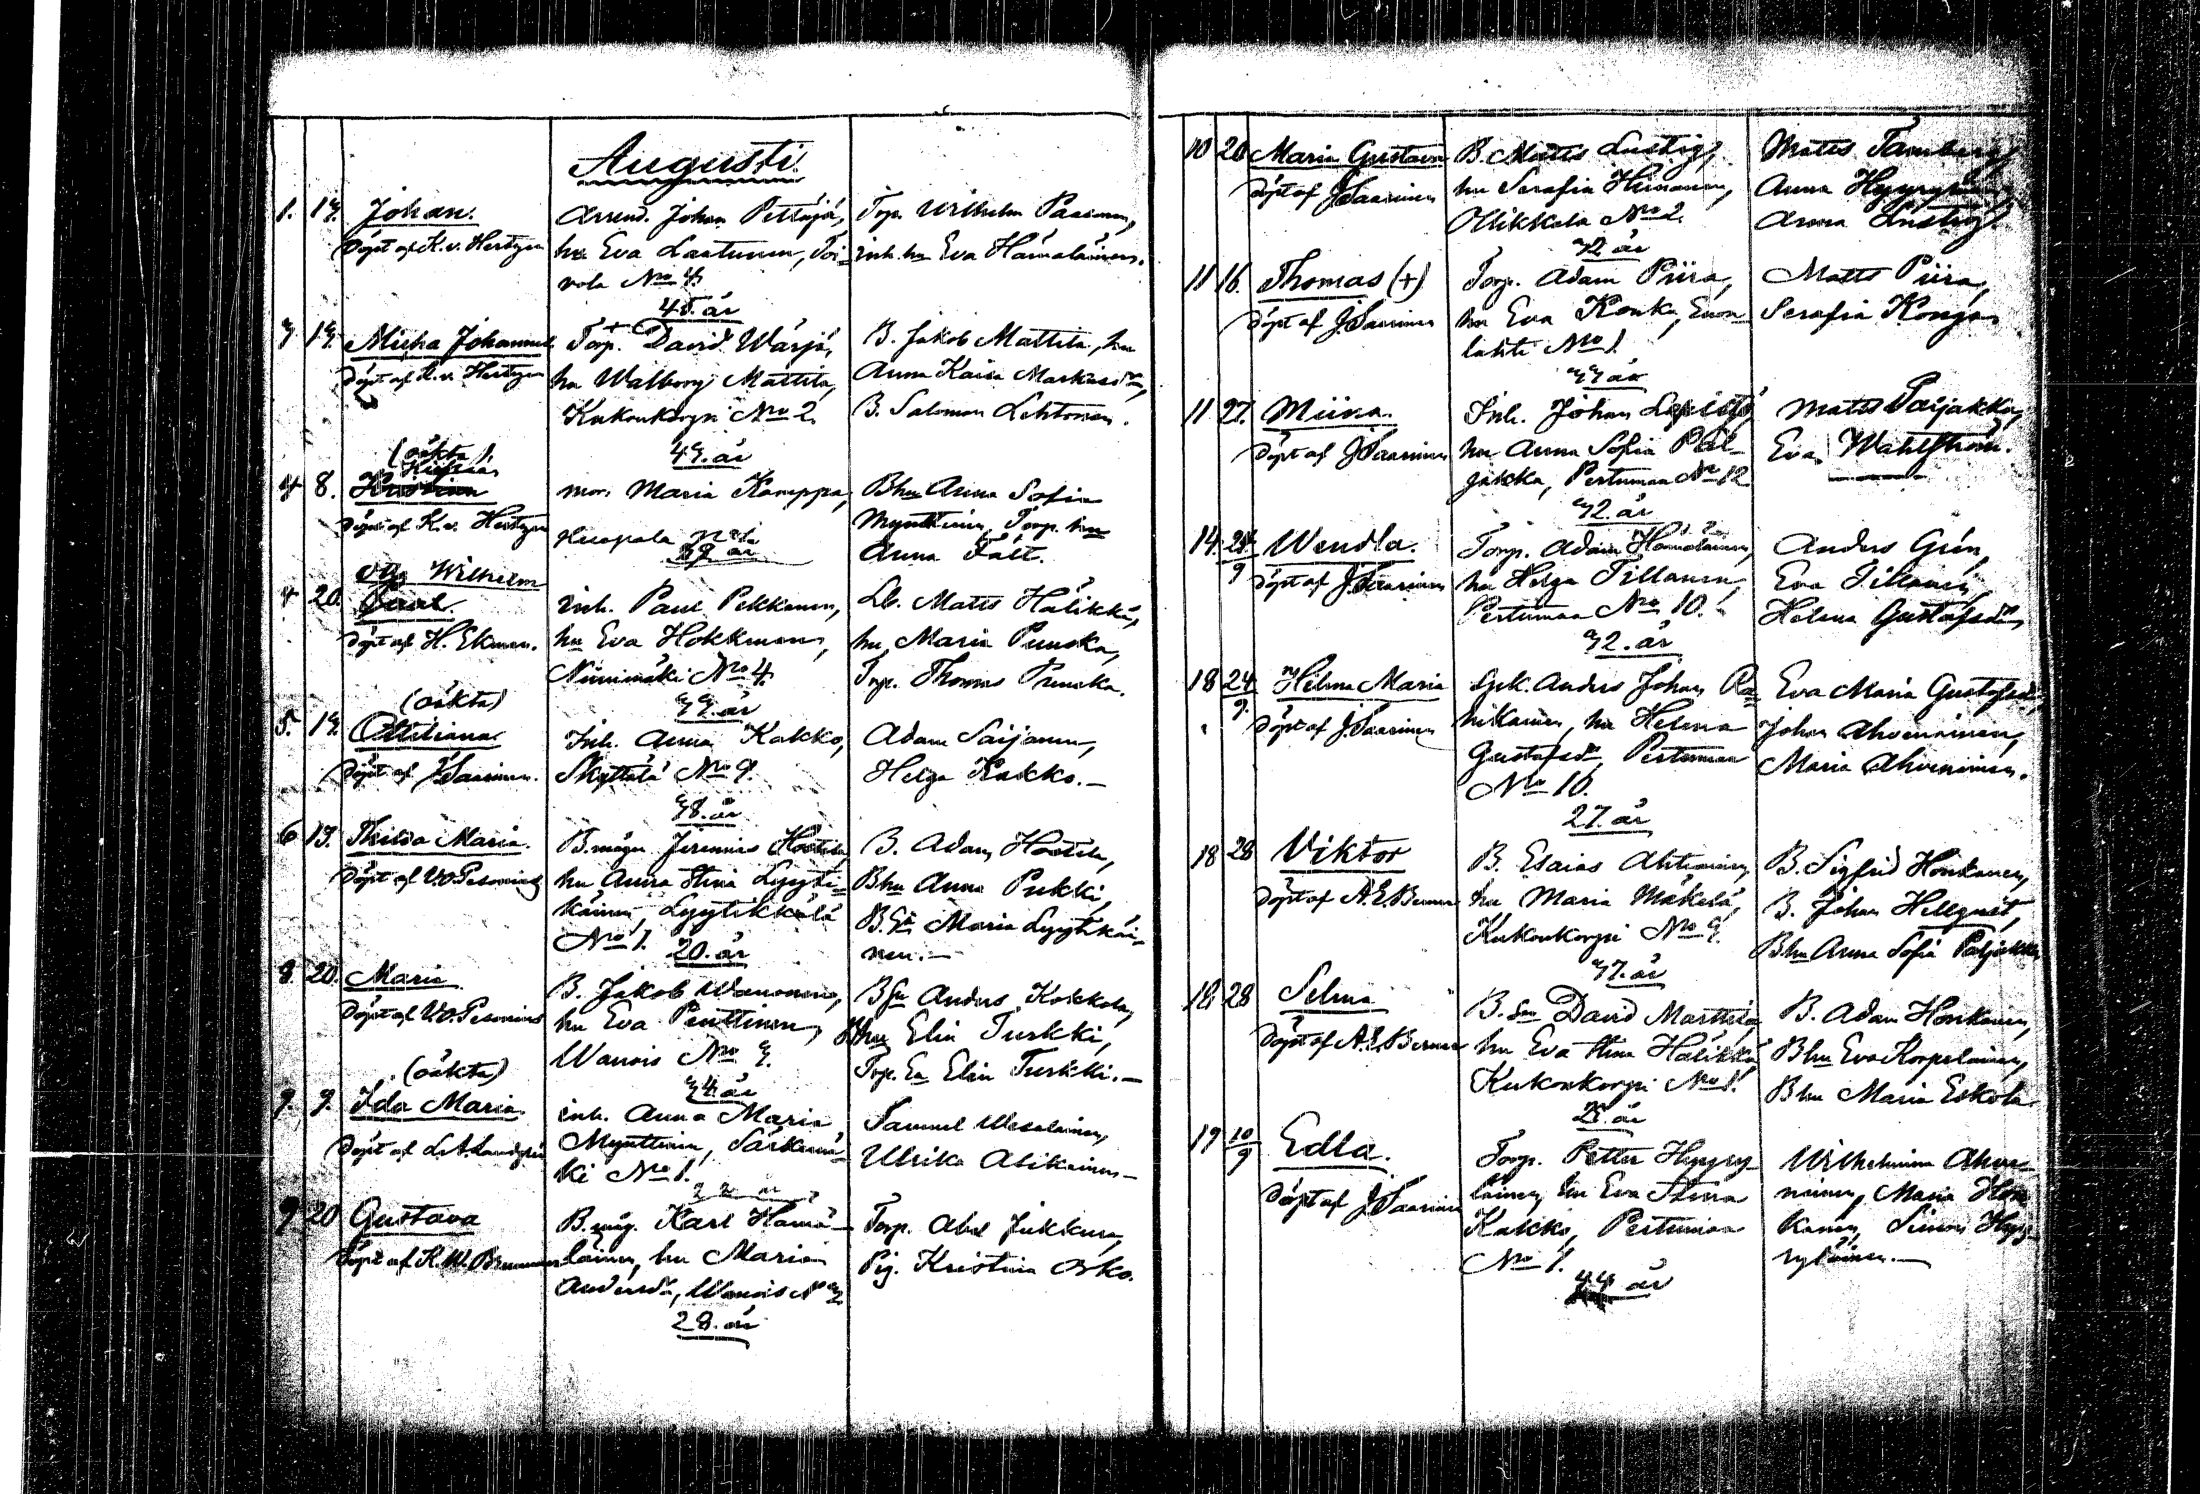 Augusti
1. 13. Johan.
Döpt af K. v. Hertzen
Arrend. Johan Pettäjä,
hu Eva Laatunen, Toi-
vola No 4.
45. år
Torp. Wilhelm Paainen,
inh. hu Eva Hämäläinen.
3 13. Micha Johannes
Döpt af K. v. Hertzen
Torp. David Wärjä,
hu Walborg Mattila,
Kukonkorpi No 2.
43. år
B. Jakob Mattila, hu
Anna Kaisa Markusdr,
B. Salomon Lehtonen.
4 8. (oäkta)
Döpt af K. v. Hertzen
mor: Maria Kamppa,
Anna Sofia
Mynttinen, Torp. hu
Anna Fält.
4 20. Wilhelm
Döpt af H. Ekman.
inh. Paul Pekkanen,
hu Eva Hokkanen,
Niinimäki No 4.
33. år
Lb. Matts Halikka,
hu Maria Punska,
Torp. Thomas Punska.
5. 13. (oäkta)
Ottiliana
Döpt af J. Saarinen.
Inh. Anna Kakko,
Skyttälä No 9.
38. år
Adam Saijonen,
Helga Kakko.
6 13. Thilda Maria.
Döpt af V. O. Pesonius
B.måg Jeremias Hootila
hu Anna Stina Lyyti-
käinen, Lyytikkälä
No 1.
20. år
B. Adam Hootila,
Bhu Anna Pukki,
Maria Lyytikäi-
nen.
8 20. Maria
Döpt af V. O. Pesonius
B. Jakob Wanonen,
hu Eva Penttinen,
Wanois No 3.
34. år
Anders Kokkola,
Bhu Elin Turkki,
Torp. Elin Turkki.
9. 9. (oäkta)
Ida Maria
Döpt af
inh. Anna Maria
Mynttinen, Särkemä-
ki No 1.
22 år
Samuel Wesalainen,
Ulrika Alikainen
9 20 Gustava
Döpt af K. W. Brummer
B.måg. Karl Hämä-
läinen, hu Maria
Andersdr, Wanois No 2
28. år
Torp. Abel Jukkara,
Pig. Kristina Orko.
10 20 Maria Gustava
Döpt af J. Saarinen
B. Matts Lustig,
hu Serafia Heinonen,
Ollikkala No 2.
32 år
Matts Tamberg,
Anna
Anna Lustig.
11 16. Thomas (+)
Döpt af J. Saarinen
Torp. Adam Piira,
hu Eva Konka, Enon-
lahti No 1.
33 år
Matts Piira,
Serafia Konga
11 27. Miina.
Döpt af J. Saarinen
Inh. Johan Lepistö,
hu Anna Sofia Pal-
jakka, Pertunmaa No 12
32. år
Matts Paljakka,
Eva Wahlström.
14. 24/9 Wendla.
Döpt af J. Saarinen
Torp. Adam Hämäläinen,
hu Helga Tillanen,
Pertunmaa No 10.
32. år
Anders Grén,
Eva
Helena Gustafsdr,
18 24/9 Hilma Maria
Döpt af J. Saarinen
Anders Johan Ra-
hikainen, hu Helena
Gustafsdr, Pertunmaa
No 10.
27. år
Eva Maria Gustafsdr,
Johan Ahvenainen,
Maria Ahvenainen.
18 28 Viktor
Döpt af A. E. Berner
B. Esaias Ahtiainen,
hu Maria Mäkelä,
Kukonkorpi No 3.
37. år
B. Sigfrid Honkanen,
B. Johan Hellquist,
Bhu Anna Sofia Paljakka
18. 28 Selma
Döpt af A. E. Berner
B.Sn David Marttila,
hu Eva Stina Halikka
Kukonkorpi No 1.
25. år
B. Adam Honkanen,
Bhu Eva Korpelainen,
Bhu Maria Eskola.
19 10/9 Edla.
Döpt af J. Saarinen
Torp. Petter Hyyry-
läinen, hu Eva Stina
Kakko, Pertunmaa
No 1.
44 år
Wilhelmina Ahve-
nainen, Maria Hon-
kanen, Simon Hyy-
ryläinen.